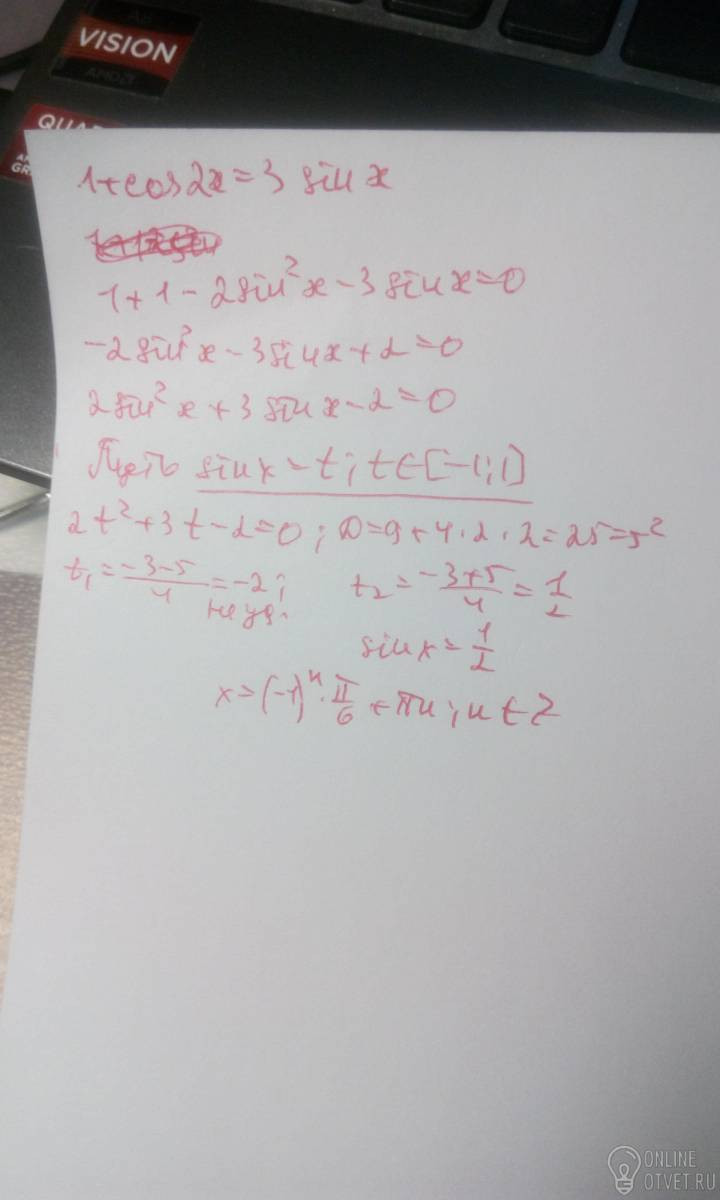 AMD
VISION
AMDZI
QUA
AM
GR
1+cos2x=3 sin x
1+1-2sin²x-3sinx=0
-2sin²x-3sinx+2=0
2sin²x+3sinx-2=0
Пусть sinx=t; t∈[-1;1]
2t²+3t-2=0; D=9+4·2·2=25=5²
t₁=(-3-5)/4=-2; t₂=(-3+5)/4=1/2
не уд.
sinx=1/2
x=(-1)ⁿ·π/6+πn; n∈Z
ONLINE
OTVET.RU